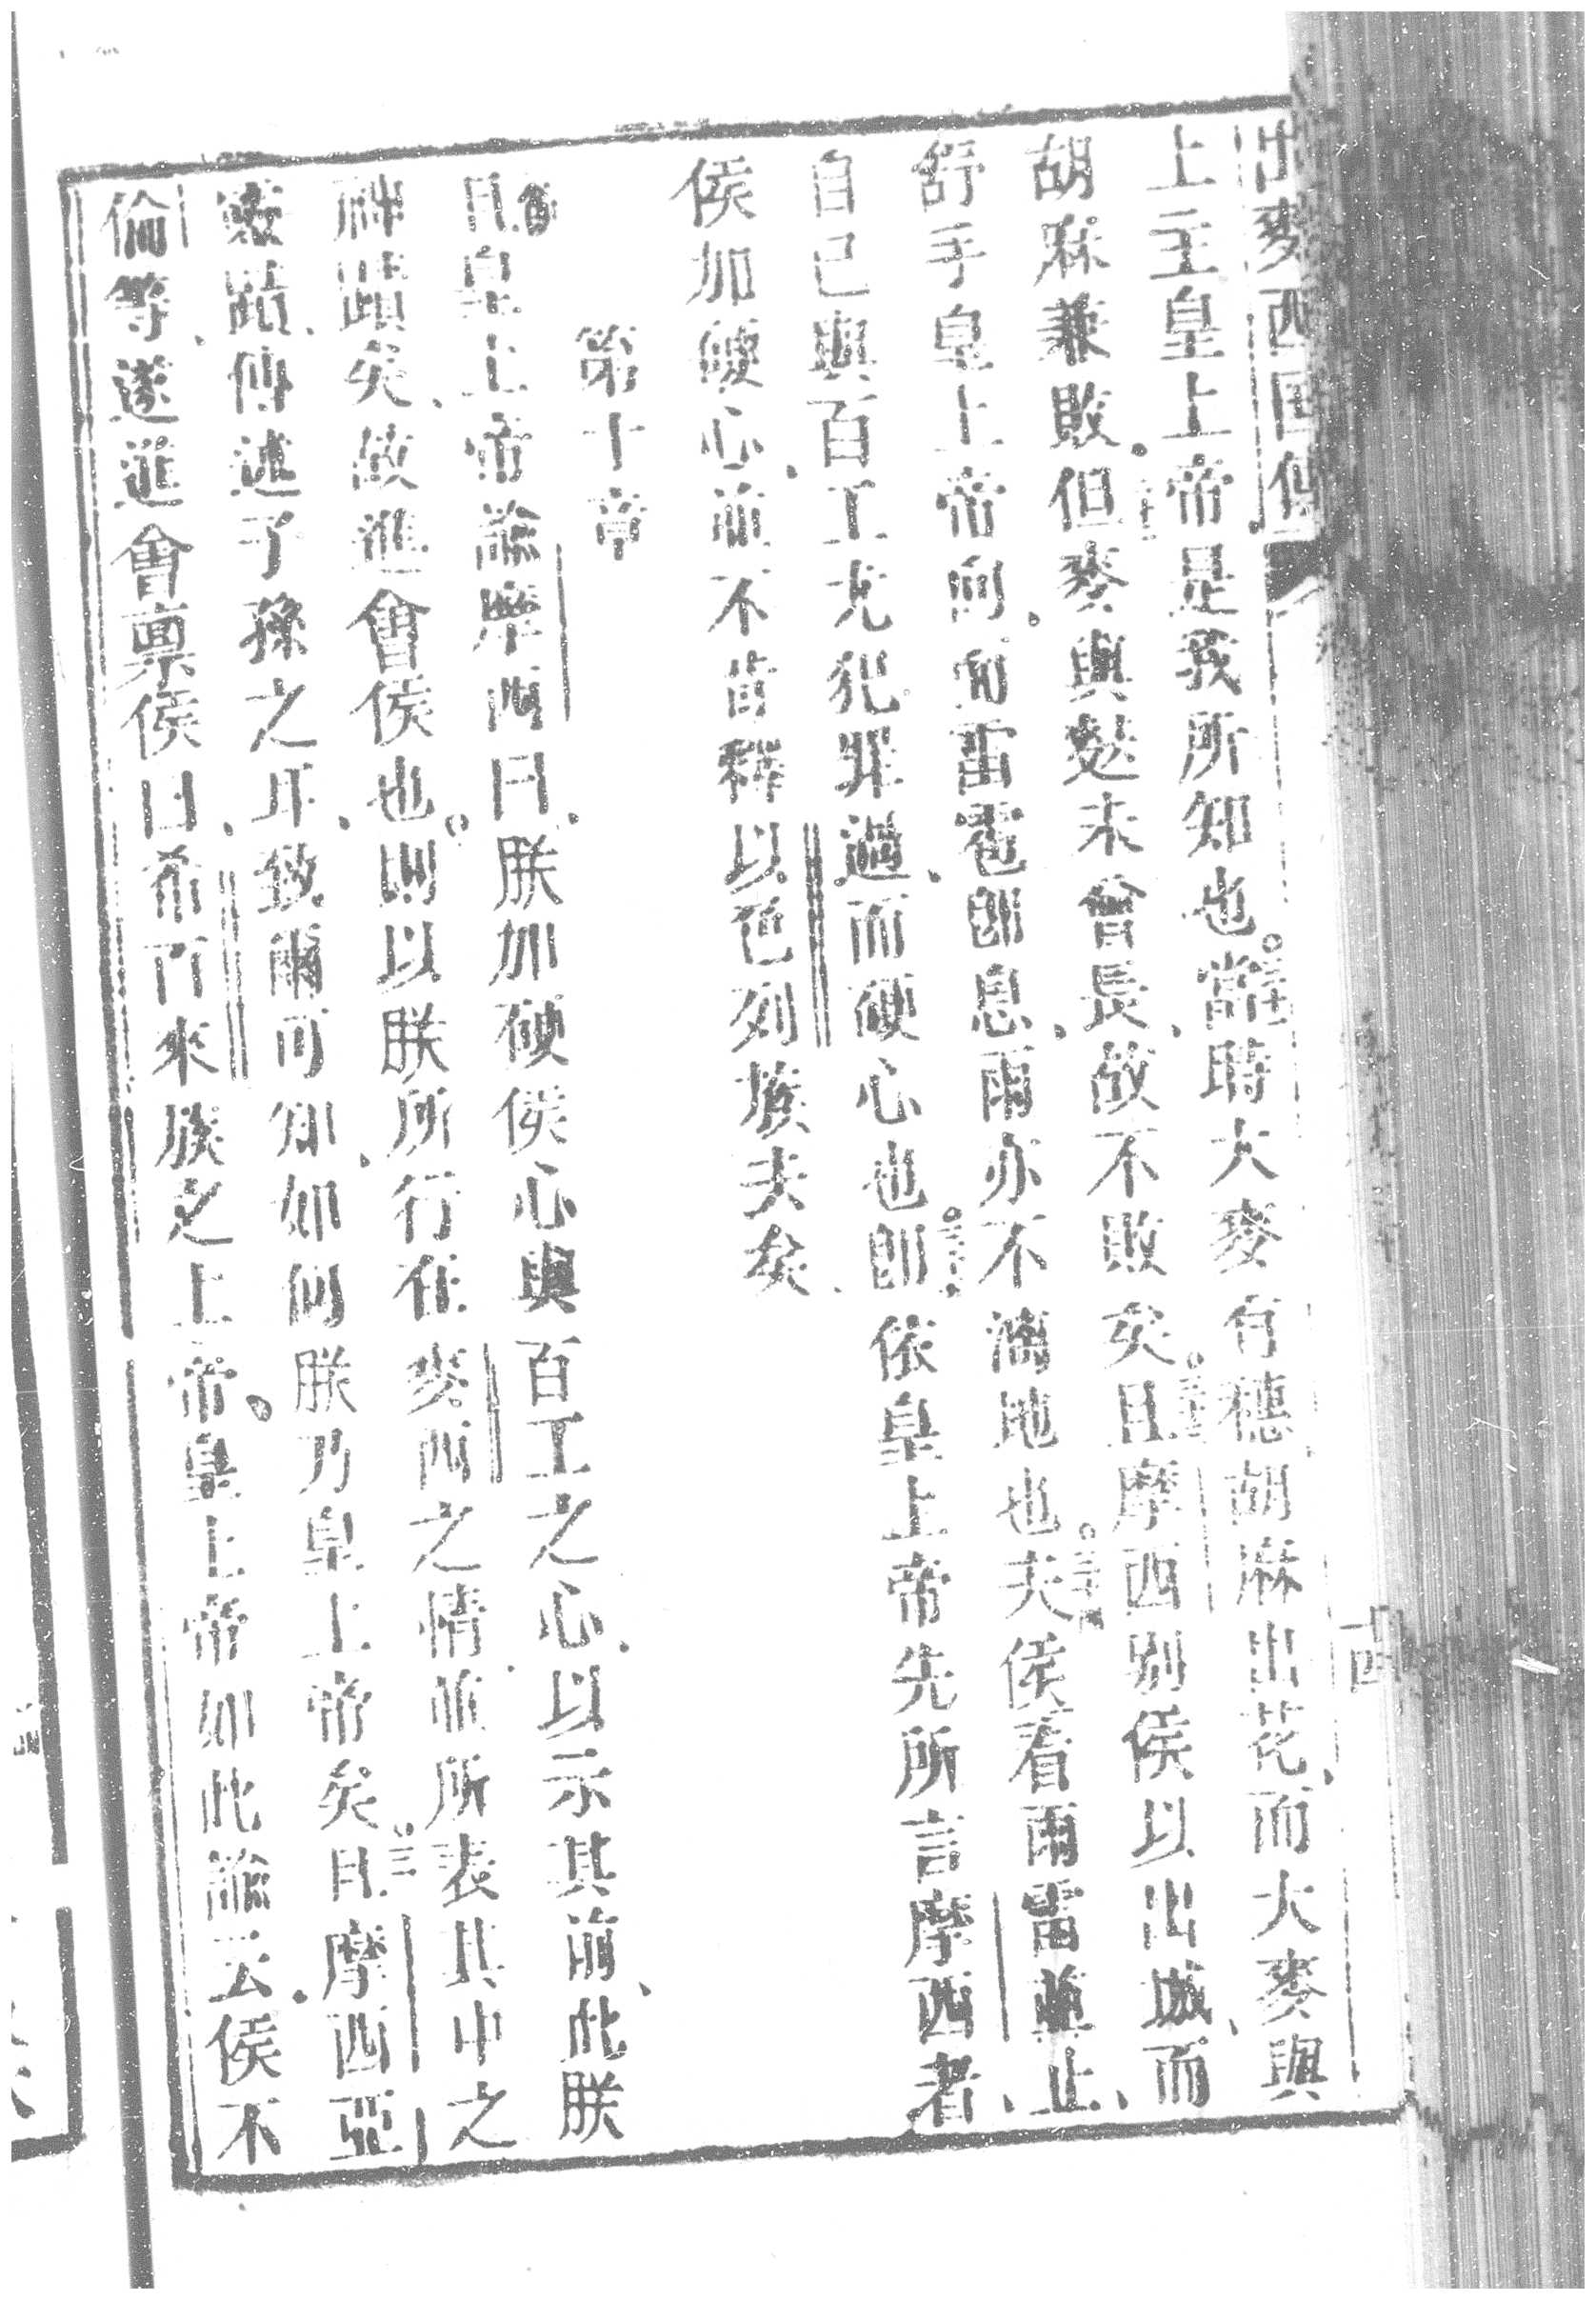 出麥西國傳
上主皇上帝是我所知也當時大麥有穗胡麻出花而大麥與
胡麻兼敗但麥與麩未曾長故不敗矣且摩西別侯以出城而
舒手皇上帝向向雷雹即息雨亦不滴地也夫侯看雨雷並止
自己與百工尤犯罪過而硬心也即依皇上帝先所言摩西者
侯加硬心並不肯釋以色列族夫矣
第十章
且皇上帝諭摩西曰朕加硬侯心與百工之心以示其前此朕
神蹟矣故進會侯也則以朕所行在麥西之情並所表其中之
蹟傳述子孫之耳致爾可知如何朕乃皇上帝矣且摩西亞
倫等遂進會稟侯曰希百來族之上帝皇上帝如此諭云侯不